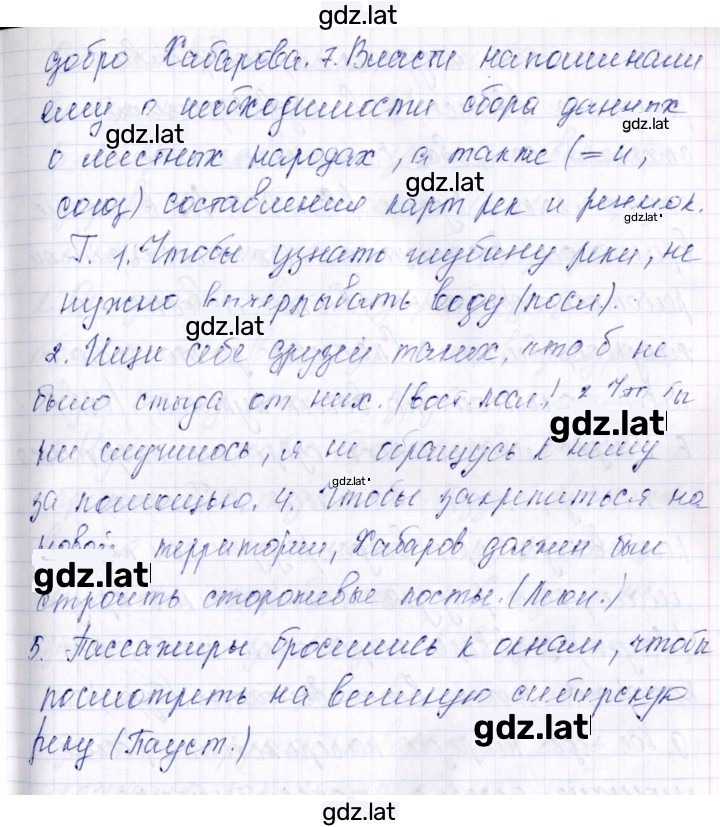 gdz.lat
добро Хабарова. 7. Власти напоминали
ему о необходимости сбора данных
gdz.lat
о местных народах, а также (= и,
gdz.lat
союз) составления карт рек и речек.
gdz.lat
Г. 1. Чтобы узнать глубину реки, не
нужно вычерпывать воду (посл).
gdz.lat
2. Ищи себе друзей таких, что б не
было стыда от них. (вост. посл.) Что бы
gdz.lat
ни случилось, я не обращусь к нему
gdz.lat
за помощью. 4. Чтобы закрепиться на
новой территории, Хабаров должен был
gdz.lat
строить сторожевые посты.
5. Пассажиры бросились к окнам, чтобы
посмотреть на великую сибирскую
gdz.lat
реку (Пауст.)
gdz.lat